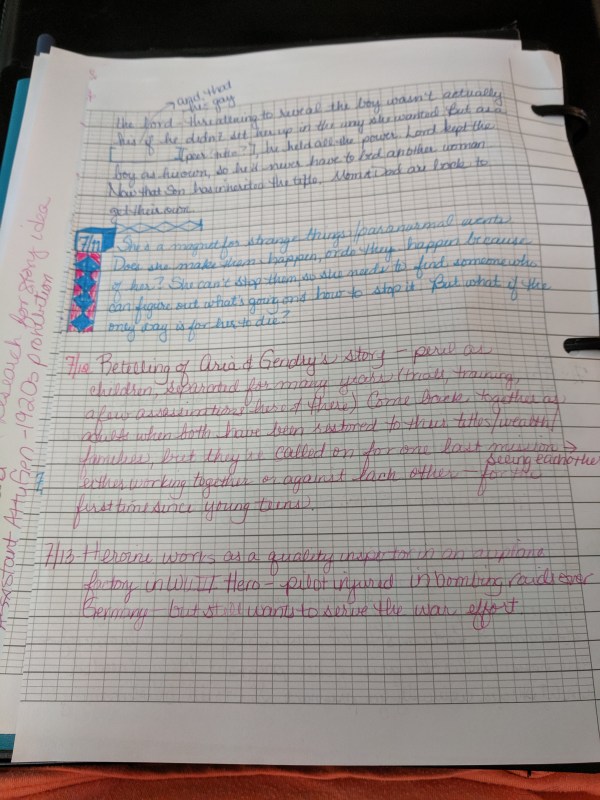 and that
he's gay
the lord threatening to reveal the boy wasn't actually
his if he didn't set her up in the way she wanted. But as a
he held all the power. Lord kept the
boy as his own, so he'd never have to bed another woman
Now that Son has inherited the title. Mom & Dad are back to
get their own
7/11 She is a magnet for strange things/paranormal events
Does she make them happen, or do they happen because
of her? She can't stop them so she needs to find someone who
can figure out what's going on & how to stop it. But what if the
only way is for her to die?
7/12 Retelling of Aria & Gendry's story - peril as
children, separated for many years (trials, training,
a few assassinations here & there) Come back together as
adults when both have been restored to their titles/wealth/
families, but they're called on for one last mission →
seeing each othe
either working together or against each other - for the
first time since young teens.
7/13 Heroine works as a quality inspector in an airplane
factory in WWII Hero - pilot injured in bombing raids over
Germany - but still wants to serve the war effort
Research for story idea
Assistant Atty Gen - 1920s prohibition